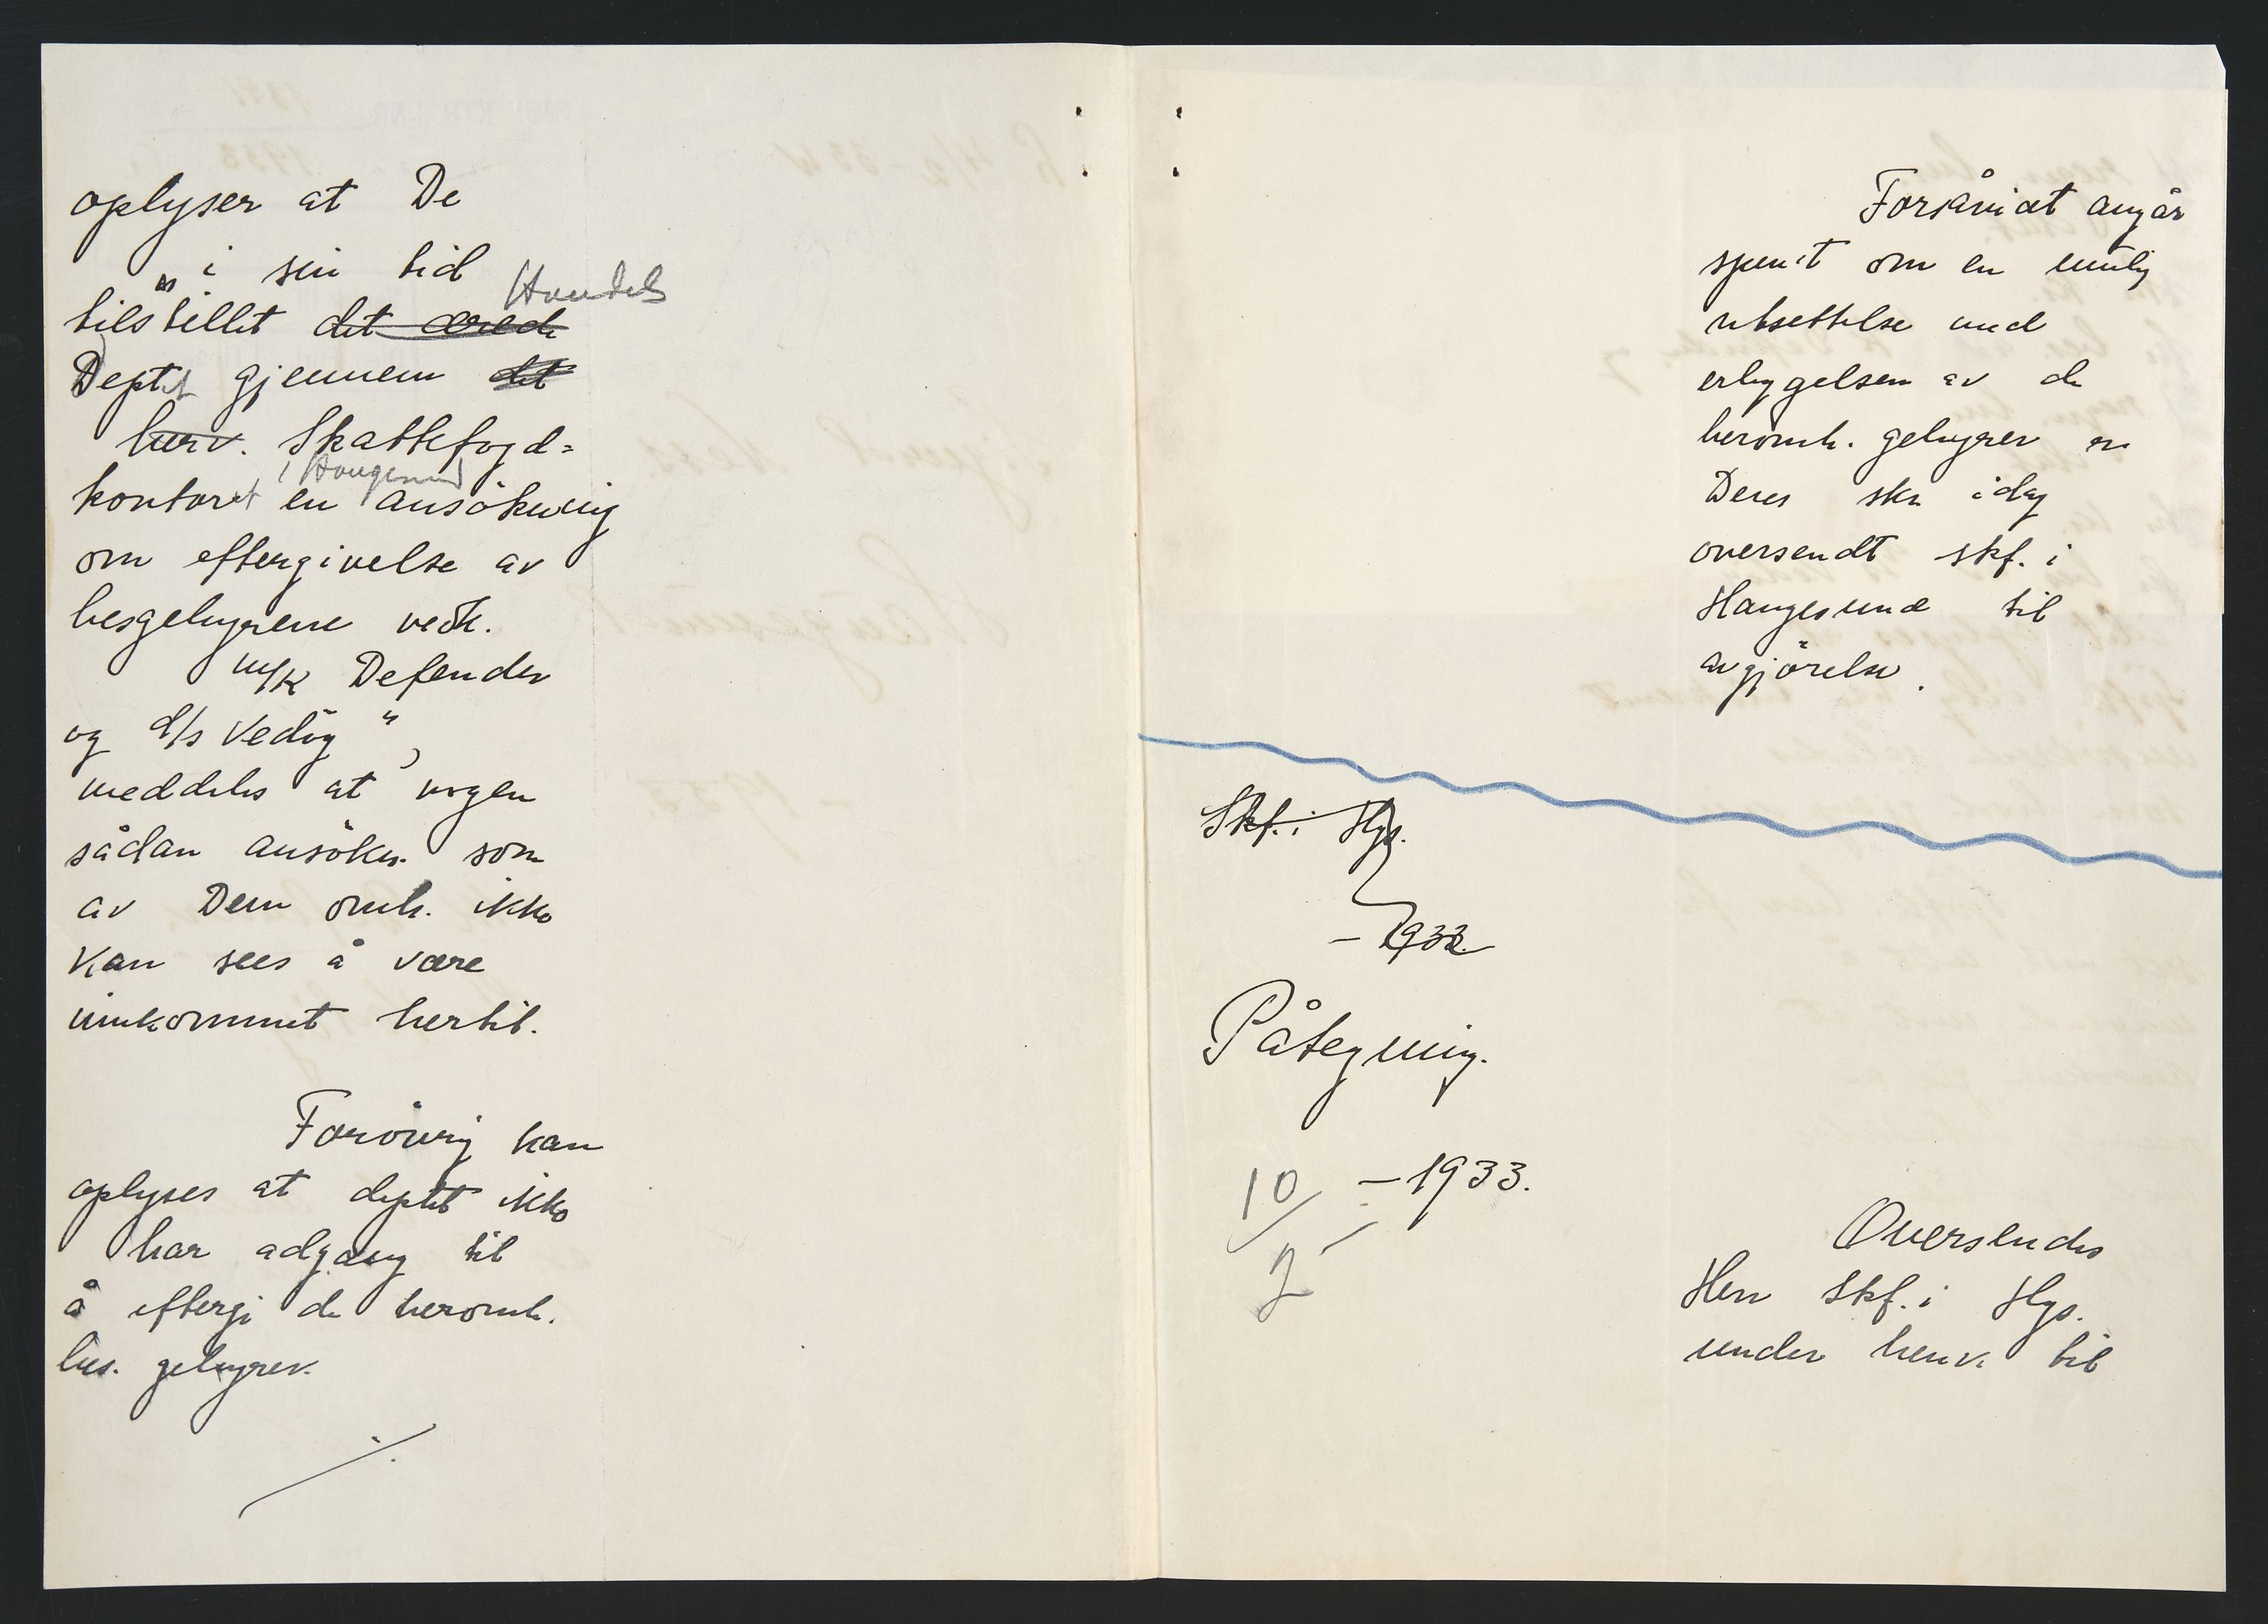 oplyser at De
i sin tid
Handels
tilstillet det ærede
Deptet gjennem det
herv. Skattefogd=
i Haugesund
kontoret en ansökning
om eftergivelse av
besgebyrene vedk.
m/k Defender
og d/s Vedög",
meddeles at nogen
sådan ansökn. som
av Dem omh. ikke
kan sees å være
innkommet hertil.
Forövrig kan
oplyses at deptet ikke
har adgang til
å eftergi de heromh.
bes. gebyrer.
Forsåvidt angår
spm't om en mulig
utsettelse med
erleggelsen av de
heromh. gebyrer er
Deres skr. idag
oversendt skf. i
Haugesund til
avgjörelse.
Skf. i Hgs.
— 1933.
Påtegning.
10/2 —1933.
Oversendes
Herr Skf. i Hgs.
under henv. til